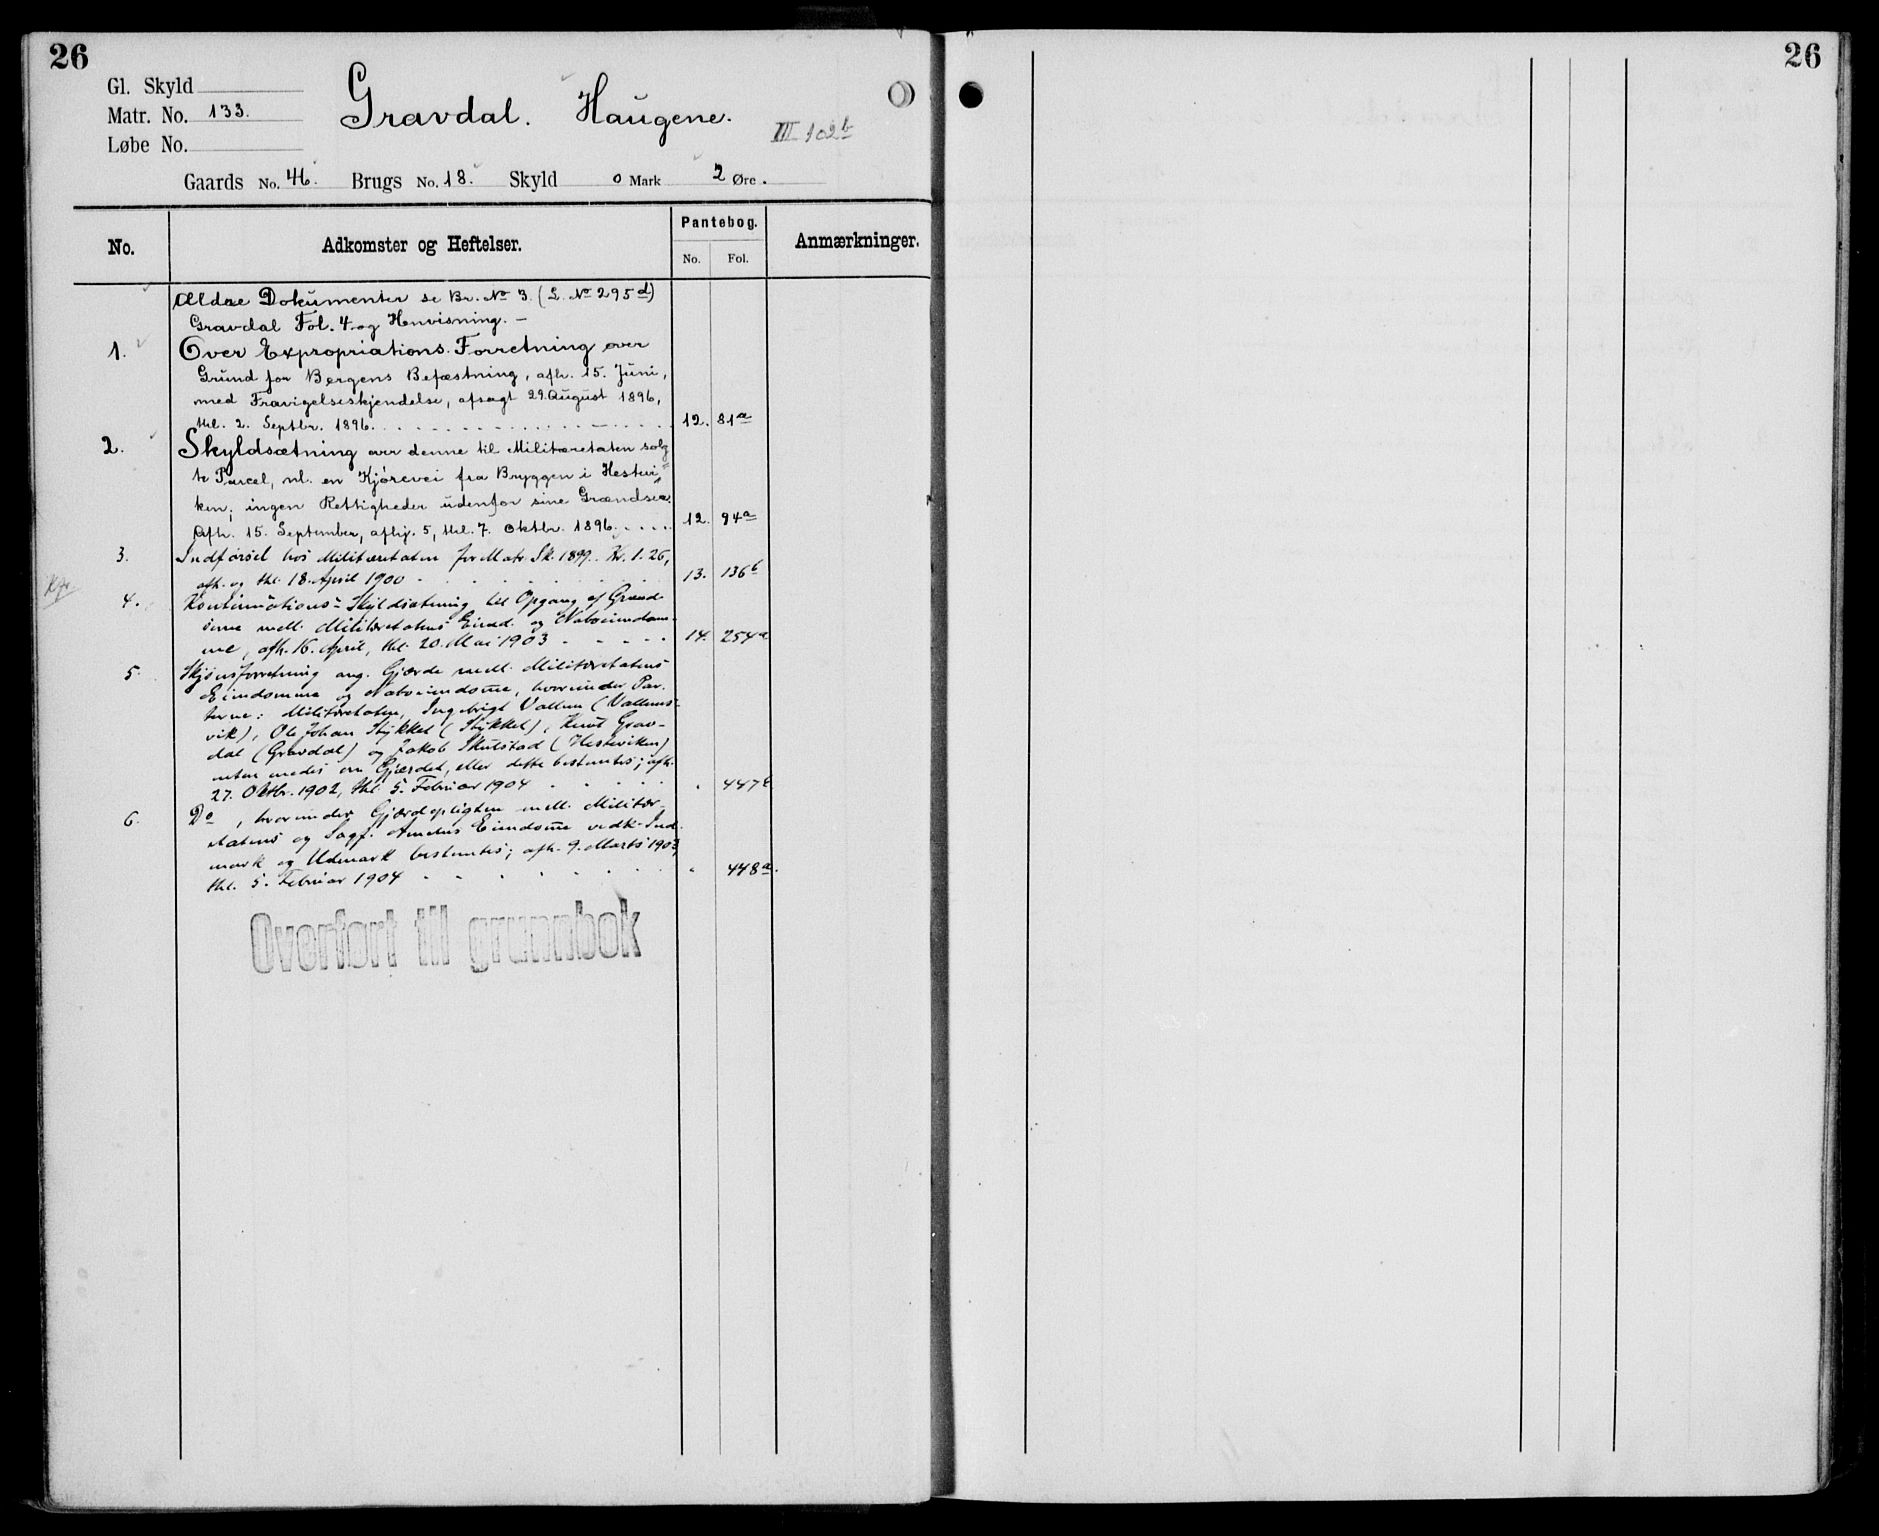 26
Gl. Skyld
Matr. No. 133.
Løbe No.
Gravdal. Haugene.
III 102b
Gaards No. 46. Brugs No. 18. Skyld 0 Mark 2 Øre.
No. Adkomster og Heftelser. Pantebog. No. Fol. Anmærkninger.
Ældre Dokumenter se Br. No 3. (L. No 295d)
Gravdal Fol. 4 og Henvisning. –
1. Over Expropriations-Forretning over
Grund for Bergens Befæstning, afh. 15. Juni,
med Fravigelseskjendelse, afsagt 29. August 1896,
thl. 2. Septbr. 1896. 12. 81a
2. Skyldsætning over denne til Militæretaten solg
te Parcel, nl. en Kjørevei fra Bryggen i Hestevi-
ken; ingen Rettigheder udenfor sine Grændser.
Afh. 15. September, afhj. 5, thl. 7. Oktbr. 1896. 12. 94a
3. Indførsel hos Militæretaten for Matr. Sk. 1899. Kr. 1.26,
afh. og thl. 18. April 1900 13. 136b
4. Kontinuations-Skyldsætning til Opgang af Grænd-
serne mell. Militæretatens Eiend. og Naboeiendom-
me, afh. 16. April, thl. 20. Mai 1903 14. 254a
5. Skjønsforretning ang. Gjærde mell. Militæretatens
Eiendomme og Naboeiendome, hvorunder Par-
terne: Militæretaten, Ingebrigt Vallem (Vallems-
vik), Ole Johan Stykket (Stykket), Knut Grav-
dal (Gravdal) og Jakob Skulstad (Hesteviken)
enten enedes om Gjærdet, eller dette bestemtes; afh.
27. Oktbr. 1902, thl. 5. Februar 1904 " 447b
6. Do, hvorunder Gjærdepligten mell. Militær-
etatens og Sagf. Eiendome vedk. Ind-
mark og Udmark bestemtes; afh. 9. Marts 1903,
thl. 5. Februar 1904 " 448a.
Overført til grunnbok
26